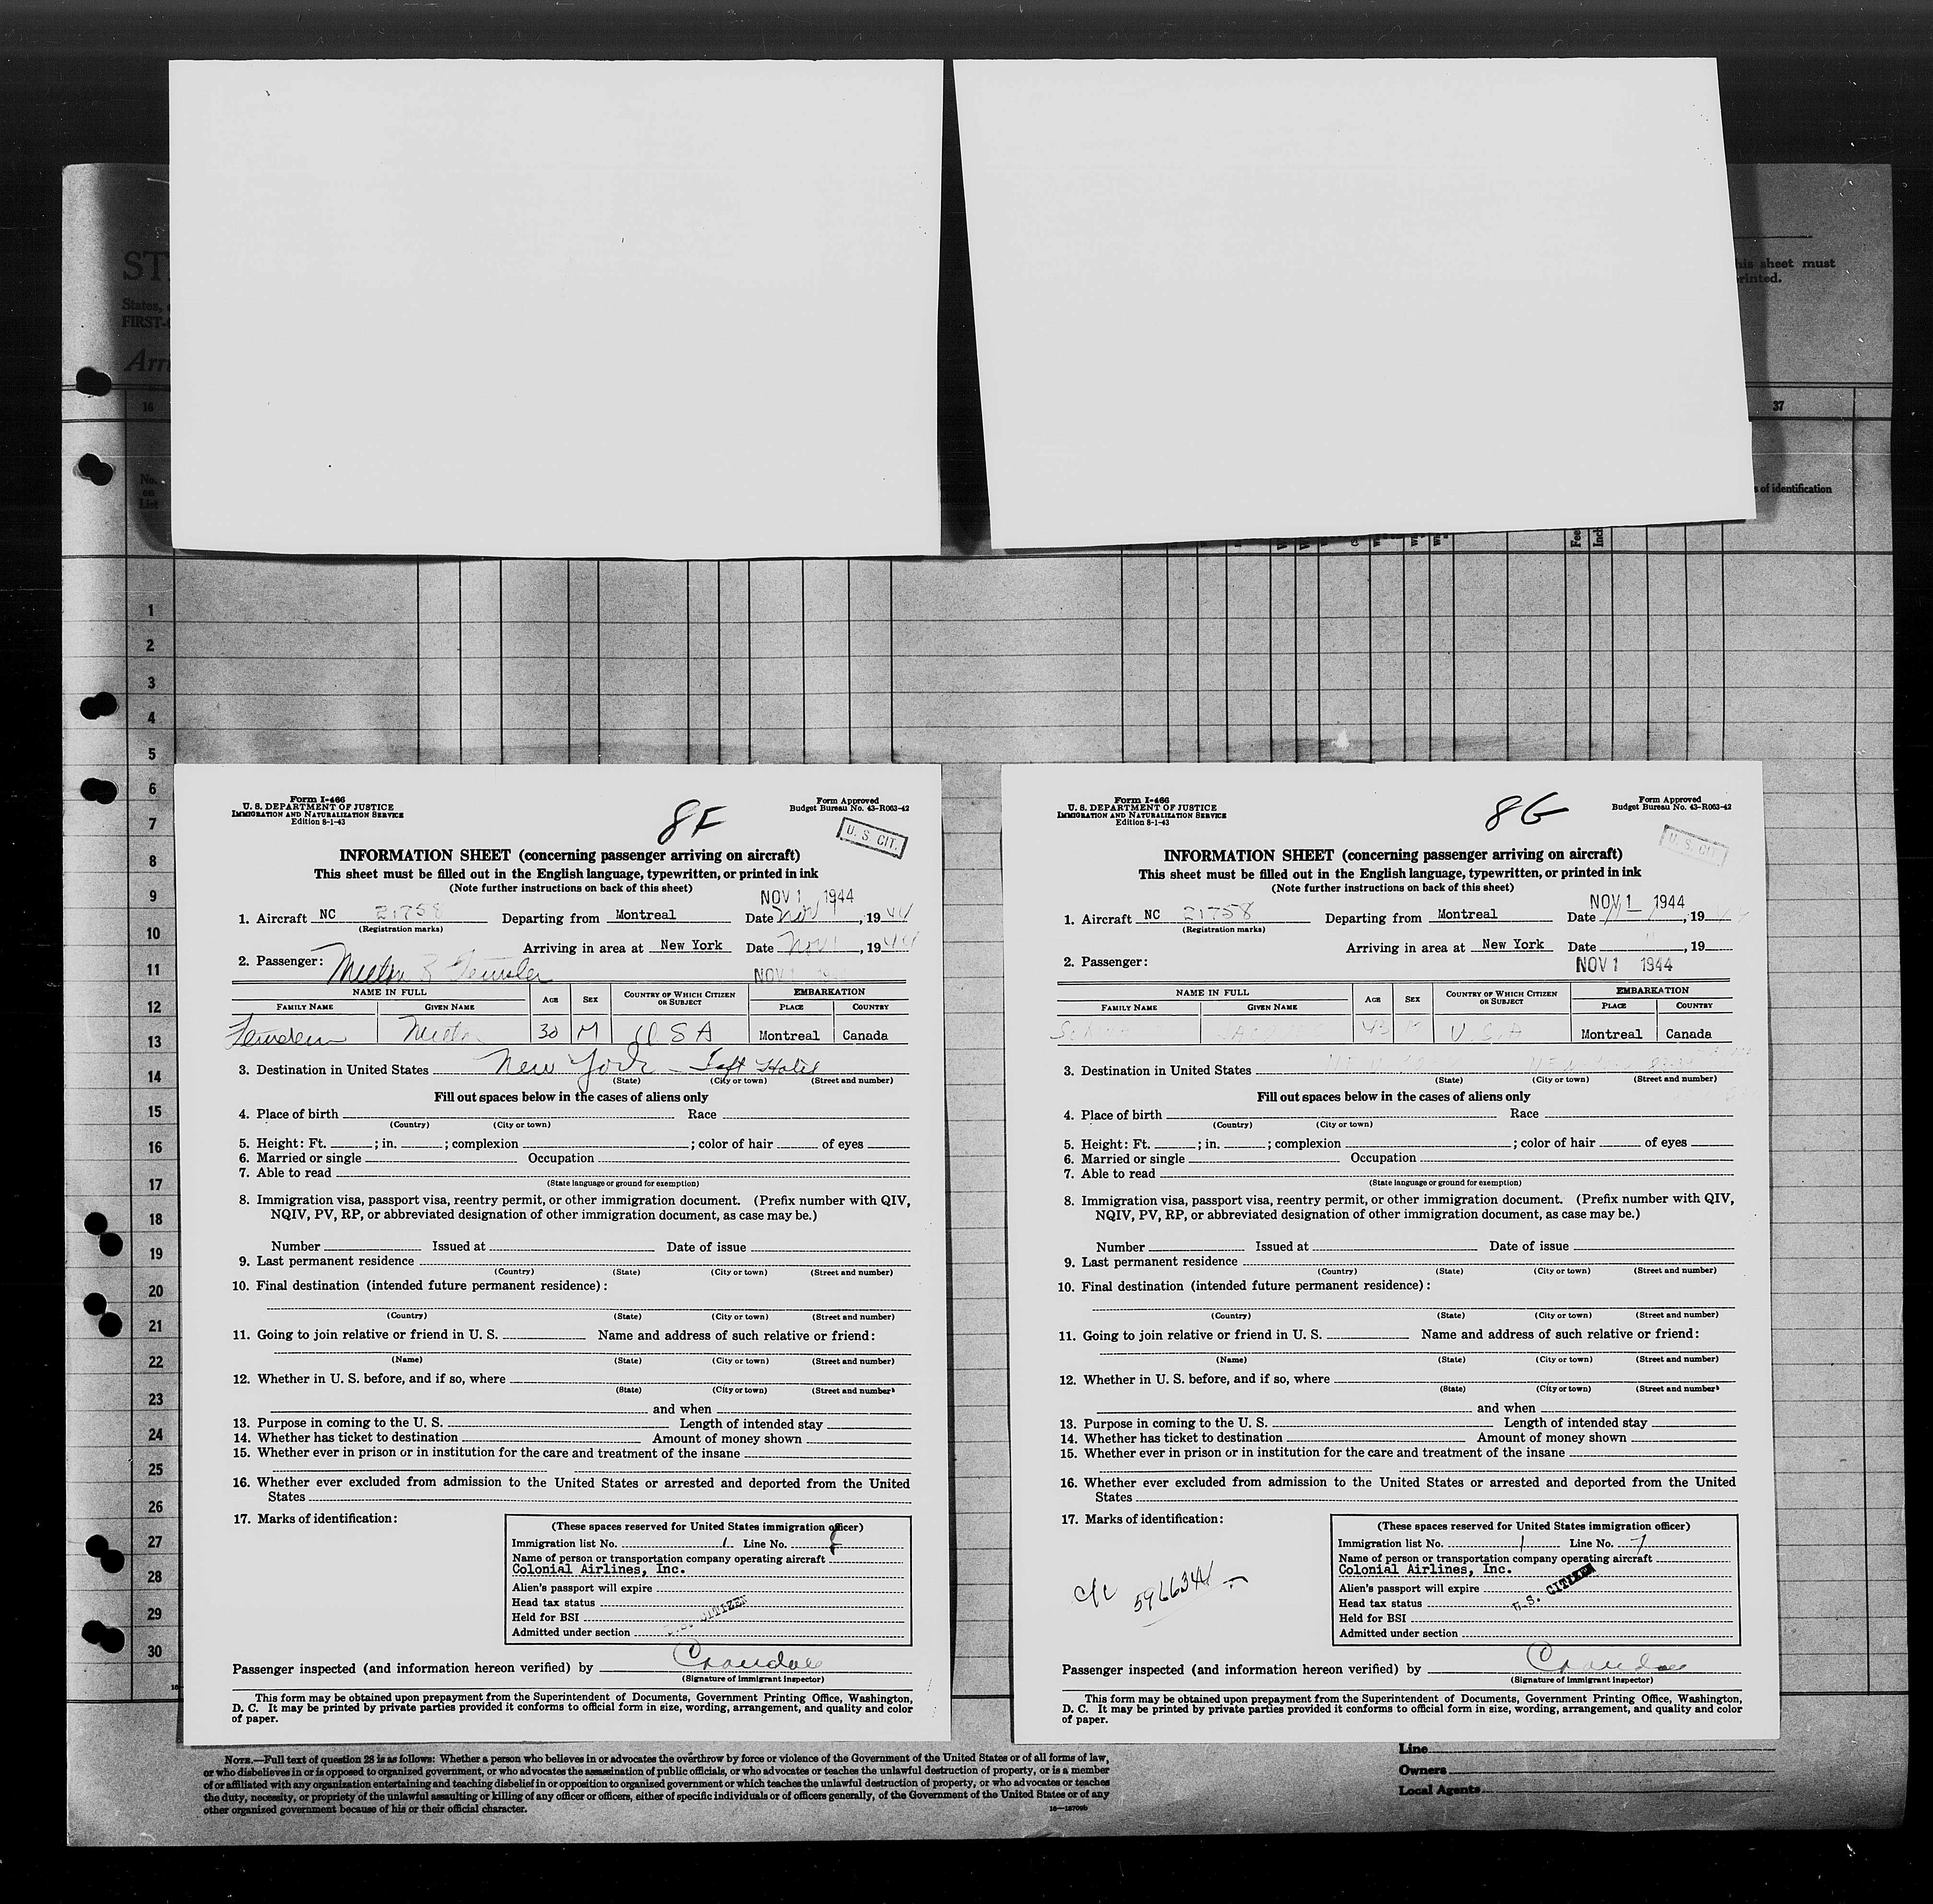 ST
States,
FIRST-
Arri
his sheet must
rinted.
16
37
No.
on
List
s of identification
Fee
Incl
1
2
3
4
5
6
7
8
9
10
11
12
13
14
15
16
17
18
19
20
21
22
23
24
25
26
27
28
29
30
Form I-466
U. S. DEPARTMENT OF JUSTICE
IMMIGRATION AND NATURALIZATION SERVICE
Edition 8-1-43
8F
Form Approved
Budget Bureau No. 43-R063-42
U. S. CIT.
INFORMATION SHEET (concerning passenger arriving on aircraft)
This sheet must be filled out in the English language, typewritten, or printed in ink
(Note further instructions on back of this sheet)
NOV 1 1944
1. Aircraft NC 21758 Departing from Montreal Date Nov 1, 1944
(Registration marks)
Arriving in area at New York Date Nov 1, 1944
2. Passenger:
NOV 1
NAME IN FULL AGE SEX COUNTRY OF WHICH CITIZEN OR SUBJECT EMBARKATION
FAMILY NAME GIVEN NAME PLACE COUNTRY
30 M U S A Montreal Canada
3. Destination in United States New York - Taft Hotel
(State) (City or town) (Street and number)
Fill out spaces below in the cases of aliens only
4. Place of birth Race
(Country) (City or town)
5. Height: Ft. ; in. ; complexion ; color of hair of eyes
6. Married or single Occupation
7. Able to read
(State language or ground for exemption)
8. Immigration visa, passport visa, reentry permit, or other immigration document. (Prefix number with QIV,
NQIV, PV, RP, or abbreviated designation of other immigration document, as case may be.)
Number Issued at Date of issue
9. Last permanent residence
(Country) (State) (City or town) (Street and number)
10. Final destination (intended future permanent residence):
(Country) (State) (City or town) (Street and number)
11. Going to join relative or friend in U. S. Name and address of such relative or friend:
(Name) (State) (City or town) (Street and number)
12. Whether in U. S. before, and if so, where
(State) (City or town) (Street and number)
and when
13. Purpose in coming to the U. S. Length of intended stay
14. Whether has ticket to destination Amount of money shown
15. Whether ever in prison or in institution for the care and treatment of the insane
16. Whether ever excluded from admission to the United States or arrested and deported from the United
States
17. Marks of identification:
(These spaces reserved for United States immigration officer)
Immigration list No. 1 Line No.
Name of person or transportation company operating aircraft
Colonial Airlines, Inc.
Alien's passport will expire
Head tax status
Held for BSI
CITIZEN
Admitted under section
Passenger inspected (and information hereon verified) by Crandall
(Signature of immigrant inspector)
This form may be obtained upon prepayment from the Superintendent of Documents, Government Printing Office, Washington,
D. C. It may be printed by private parties provided it conforms to official form in size, wording, arrangement, and quality and color
of paper.
Form I-466
U. S. DEPARTMENT OF JUSTICE
IMMIGRATION AND NATURALIZATION SERVICE
Edition 8-1-43
8G
Form Approved
Budget Bureau No. 43-R063-42
U. S. CIT.
INFORMATION SHEET (concerning passenger arriving on aircraft)
This sheet must be filled out in the English language, typewritten, or printed in ink
(Note further instructions on back of this sheet)
NOV 1 1944
1. Aircraft NC 21758 Departing from Montreal Date , 19
(Registration marks)
Arriving in area at New York Date , 19
2. Passenger:
NOV 1 1944
NAME IN FULL AGE SEX COUNTRY OF WHICH CITIZEN OR SUBJECT EMBARKATION
FAMILY NAME GIVEN NAME PLACE COUNTRY
43 M U.S.A Montreal Canada
3. Destination in United States
(State) (City or town) (Street and number)
Fill out spaces below in the cases of aliens only
4. Place of birth Race
(Country) (City or town)
5. Height: Ft. ; in. ; complexion ; color of hair of eyes
6. Married or single Occupation
7. Able to read
(State language or ground for exemption)
8. Immigration visa, passport visa, reentry permit, or other immigration document. (Prefix number with QIV,
NQIV, PV, RP, or abbreviated designation of other immigration document, as case may be.)
Number Issued at Date of issue
9. Last permanent residence
(Country) (State) (City or town) (Street and number)
10. Final destination (intended future permanent residence):
(Country) (State) (City or town) (Street and number)
11. Going to join relative or friend in U. S. Name and address of such relative or friend:
(Name) (State) (City or town) (Street and number)
12. Whether in U. S. before, and if so, where
(State) (City or town) (Street and number)
and when
13. Purpose in coming to the U. S. Length of intended stay
14. Whether has ticket to destination Amount of money shown
15. Whether ever in prison or in institution for the care and treatment of the insane
16. Whether ever excluded from admission to the United States or arrested and deported from the United
States
17. Marks of identification:
(These spaces reserved for United States immigration officer)
Immigration list No. 1 Line No. 7
Name of person or transportation company operating aircraft
Colonial Airlines, Inc.
Alien's passport will expire
U. S. CITIZEN
Head tax status
Held for BSI
Admitted under section
Passenger inspected (and information hereon verified) by Crandall
(Signature of immigrant inspector)
This form may be obtained upon prepayment from the Superintendent of Documents, Government Printing Office, Washington,
D. C. It may be printed by private parties provided it conforms to official form in size, wording, arrangement, and quality and color
of paper.
NOTE.—Full text of question 28 is as follows: Whether a person who believes in or advocates the overthrow by force or violence of the Government of the United States or of all forms of law,
or who disbelieves in or is opposed to organized government, or who advocates the assassination of public officials, or who advocates or teaches the unlawful destruction of property, or is a member
of or affiliated with any organization entertaining and teaching disbelief in or opposition to organized government or which teaches the unlawful destruction of property, or who advocates or teaches
the duty, necessity, or propriety of the unlawful assaulting or killing of any officer or officers, either of specific individuals or of officers generally, of the Government of the United States or of any
other organized government because of his or their official character.
16—18709b
Line
Owners
Local Agents